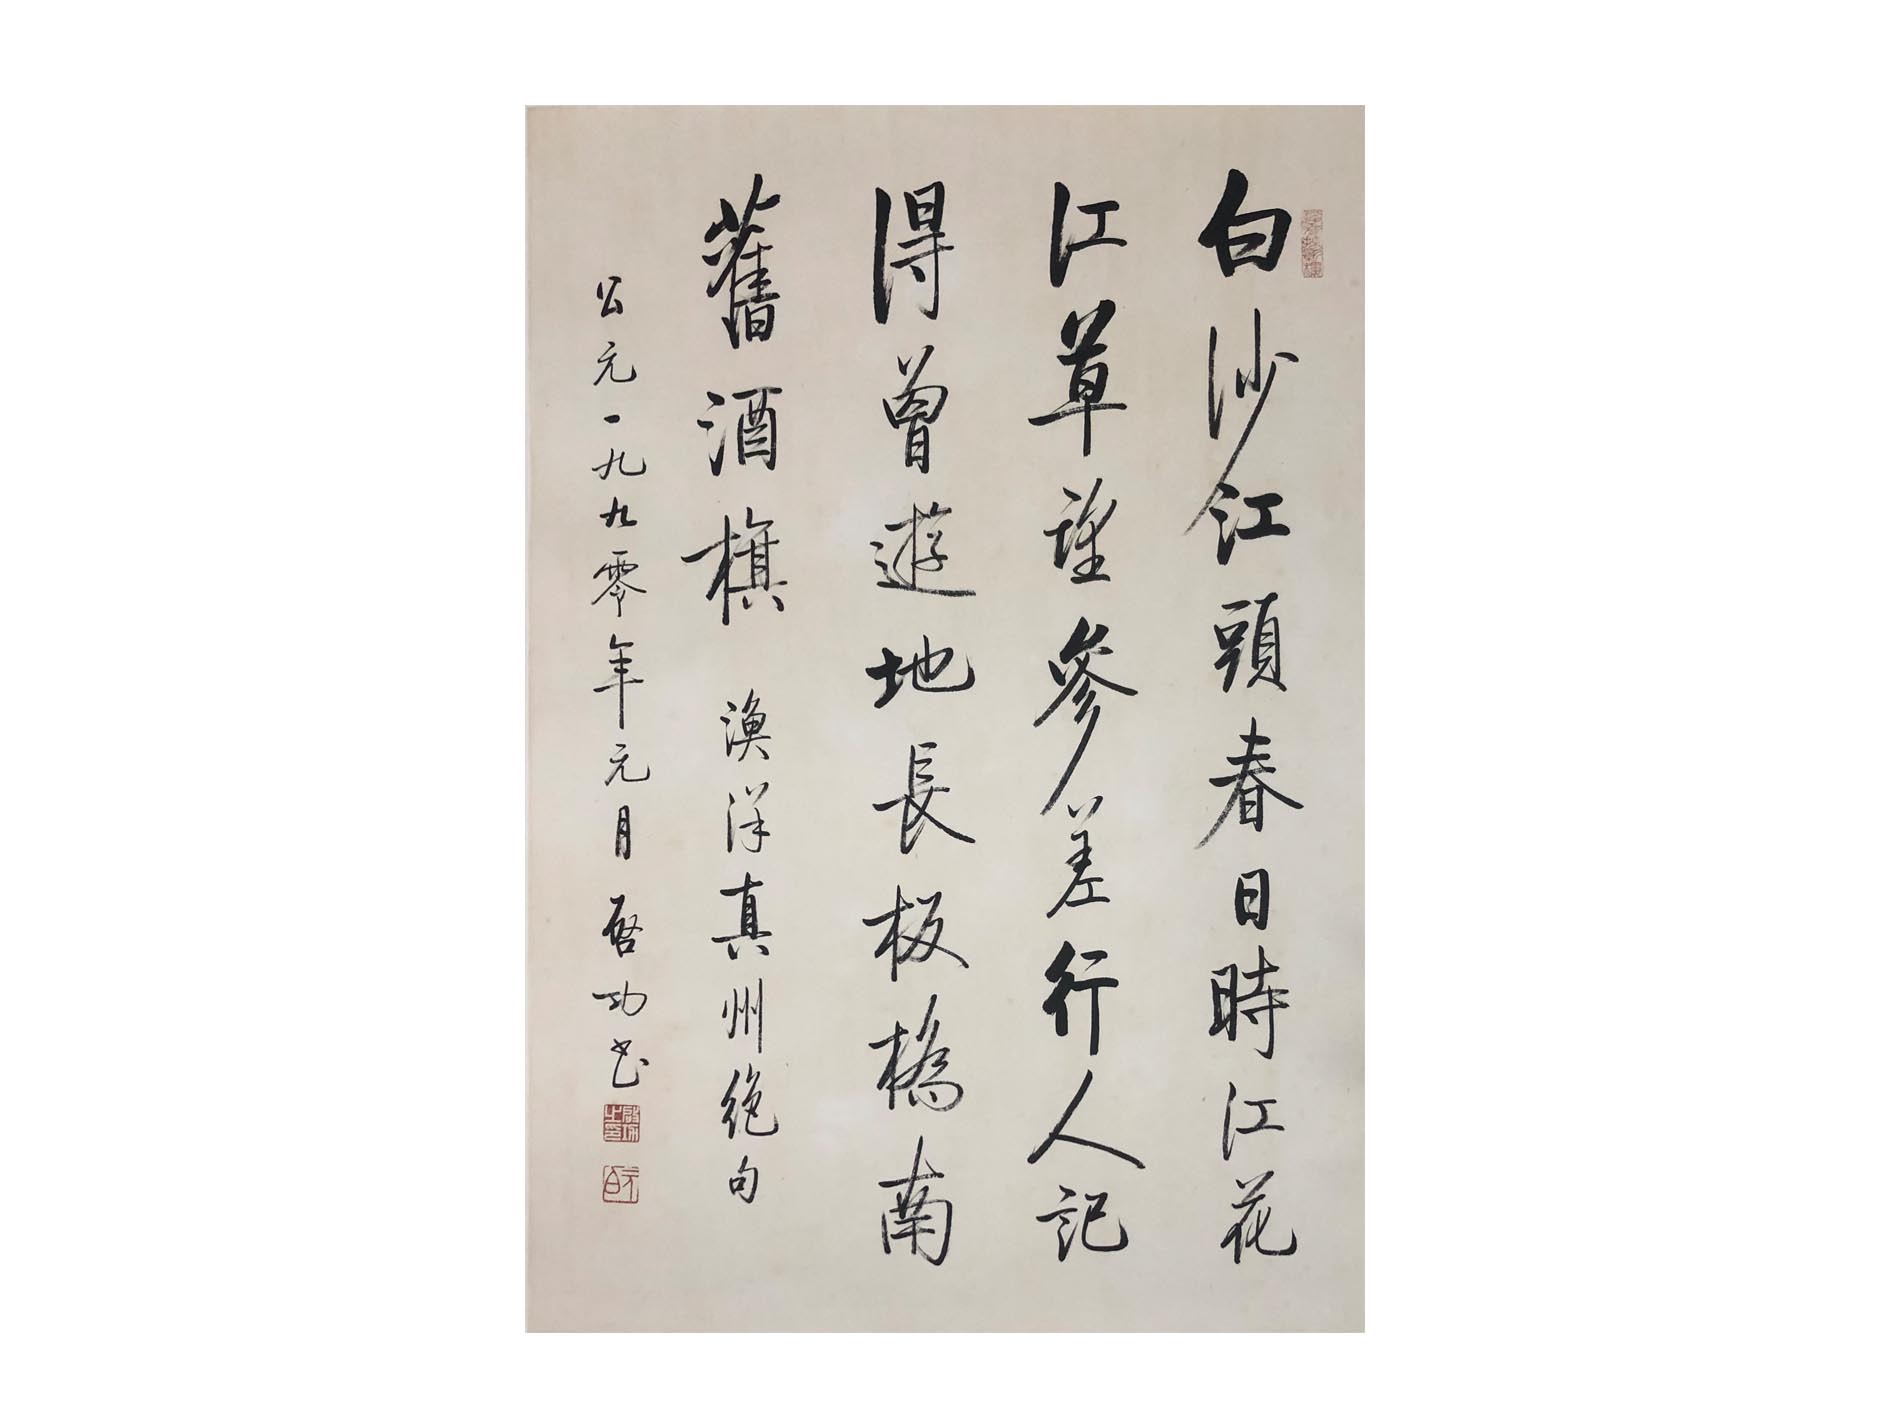 白沙江頭春日時江花
江草望參差行人記
得曾遊地長板橋南
舊酒旗 漁洋真州絕句
公元一九九零年元月啓功書
啟功之印
元白